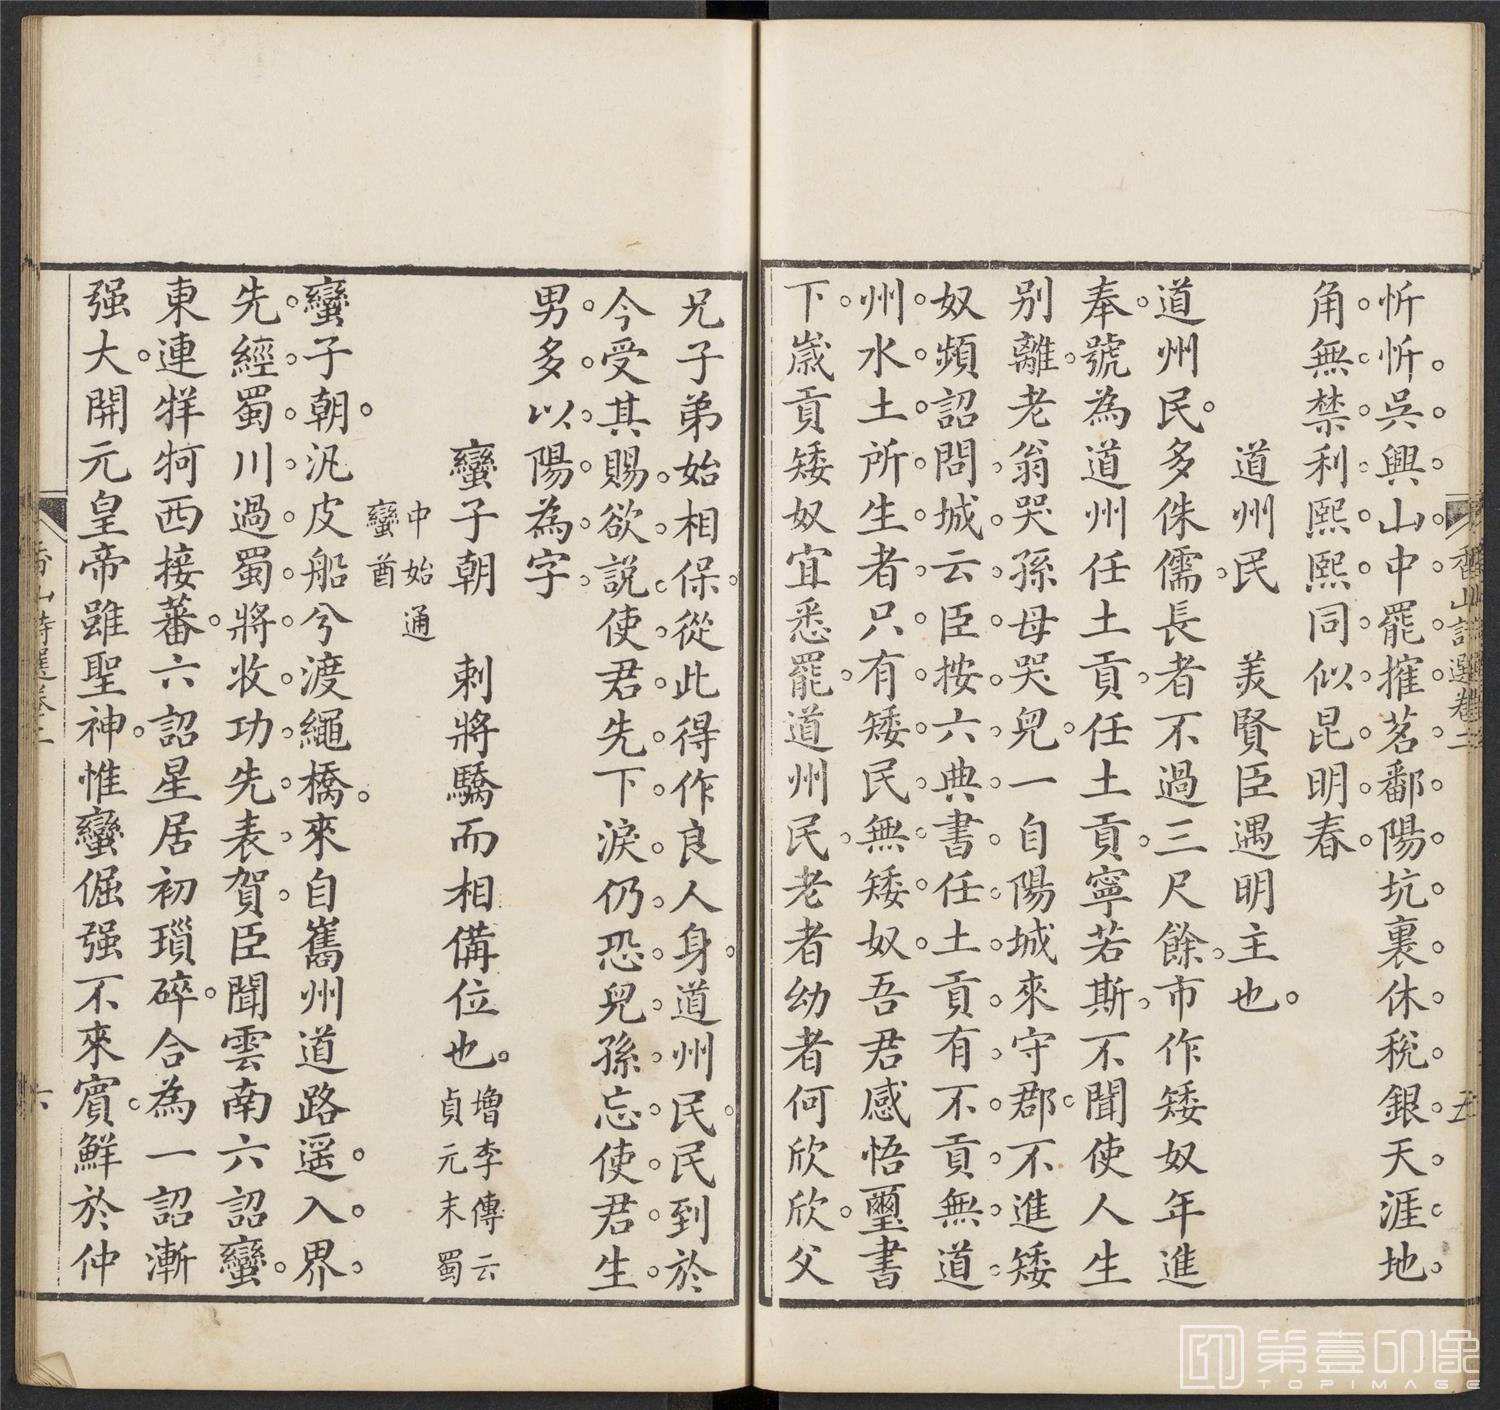 忻忻吳興山中罷搉茗鄱陽坑裏休稅銀天涯地
角無禁利熙熙同似昆明春
道州民　美賢臣遇明主也
道州民多侏儒長者不過三尺餘市作矮奴年進
奉號為道州任土貢任土貢寧若斯不聞使人生
别離老翁哭孫母哭兒一自陽城來守郡不進矮
奴頻詔問城云臣按六典書任土貢有不貢無道
州水土所生者只有矮民無矮奴吾君感悟璽書
下歲貢矮奴宜悉罷道州民老者幼者何欣欣父
兄子弟始相保從此得作良人身道州民民到於
今受其賜欲說使君先下淚仍恐兒孫忘使君生
男多以陽為字
蠻子朝　刺將驕而相備位也
增李傳云
貞元末蜀
中始通
蠻酋
蠻子朝汎皮船兮渡繩橋來自巂州道路遥入界
先經蜀川過蜀將收功先表賀臣聞雲南六詔蠻
東連牂牁西接蕃六詔星居初瑣碎合為一詔漸
强大開元皇帝雖聖神惟蠻倔强不來賓鮮於仲
香山詩選卷二
五
香山詩選卷二
六
第壹印像
TOPIMAGE